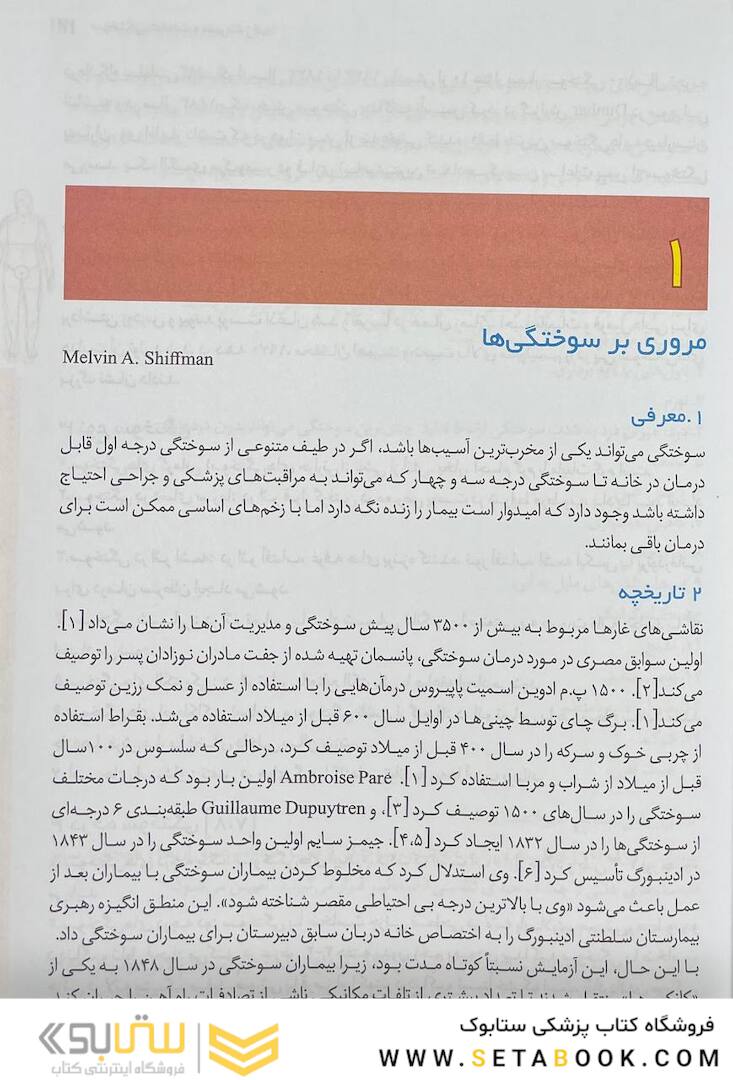 ۱
مروری بر سوختگی‌ها
Melvin A. Shiffman
۱.معرفی
سوختگی می‌تواند یکی از مخرب‌ترین آسیب‌ها باشد، اگر در طیف متنوعی از سوختگی درجه اول قابل
درمان در خانه تا سوختگی درجه سه و چهار که می‌تواند به مراقبت‌های پزشکی و جراحی احتیاج
داشته باشد وجود دارد که امیدوار است بیمار را زنده نگه دارد اما با زخم‌های اساسی ممکن است برای
درمان باقی بمانند.
۲ تاریخچه
نقاشی‌های غارها مربوط به بیش از ۳۵۰۰ سال پیش سوختگی و مدیریت آن‌ها را نشان می‌داد [۱].
اولین سوابق مصری در مورد درمان سوختگی، پانسمان تهیه شده از جفت مادران نوزادان پسر را توصیف
می‌کند[۲]. ۱۵۰۰ پ.م ادوین اسمیت پاپیروس درمان‌هایی را با استفاده از عسل و نمک رزین توصیف
می‌کند[۱]. برگ چای توسط چینی‌ها در اوایل سال ۶۰۰ قبل از میلاد استفاده می‌شد. بقراط استفاده
از چربی خوک و سرکه را در سال ۴۰۰ قبل از میلاد توصیف کرد، درحالی که سلسوس در ۱۰۰سال
قبل از میلاد از شراب و مربا استفاده کرد [۱]. Ambroise Paré اولین بار بود که درجات مختلف
سوختگی را در سال‌های ۱۵۰۰ توصیف کرد [۳]، و Guillaume Dupuytren طبقه‌بندی ۶ درجه‌ای
از سوختگی‌ها را در سال ۱۸۳۲ ایجاد کرد [۴،۵]. جیمز سایم اولین واحد سوختگی را در سال ۱۸۴۳
در ادینبورگ تأسیس کرد [۶]. وی استدلال کرد که مخلوط کردن بیماران سوختگی با بیماران بعد از
عمل باعث می‌شود «وی با بالاترین درجه بی احتیاطی مقصر شناخته شود». این منطق انگیزه رهبری
بیمارستان سلطنتی ادینبورگ را به اختصاص خانه دربان سابق دبیرستان برای بیماران سوختگی داد.
با این حال، این آزمایش نسبتاً کوتاه مدت بود، زیرا بیماران سوختگی در سال ۱۸۴۸ به یکی از
فروشگاه کتاب پزشکی ستابوک
WWW.SETABOOK.COM
ستابوک
فروشگاه اینترنتی کتاب